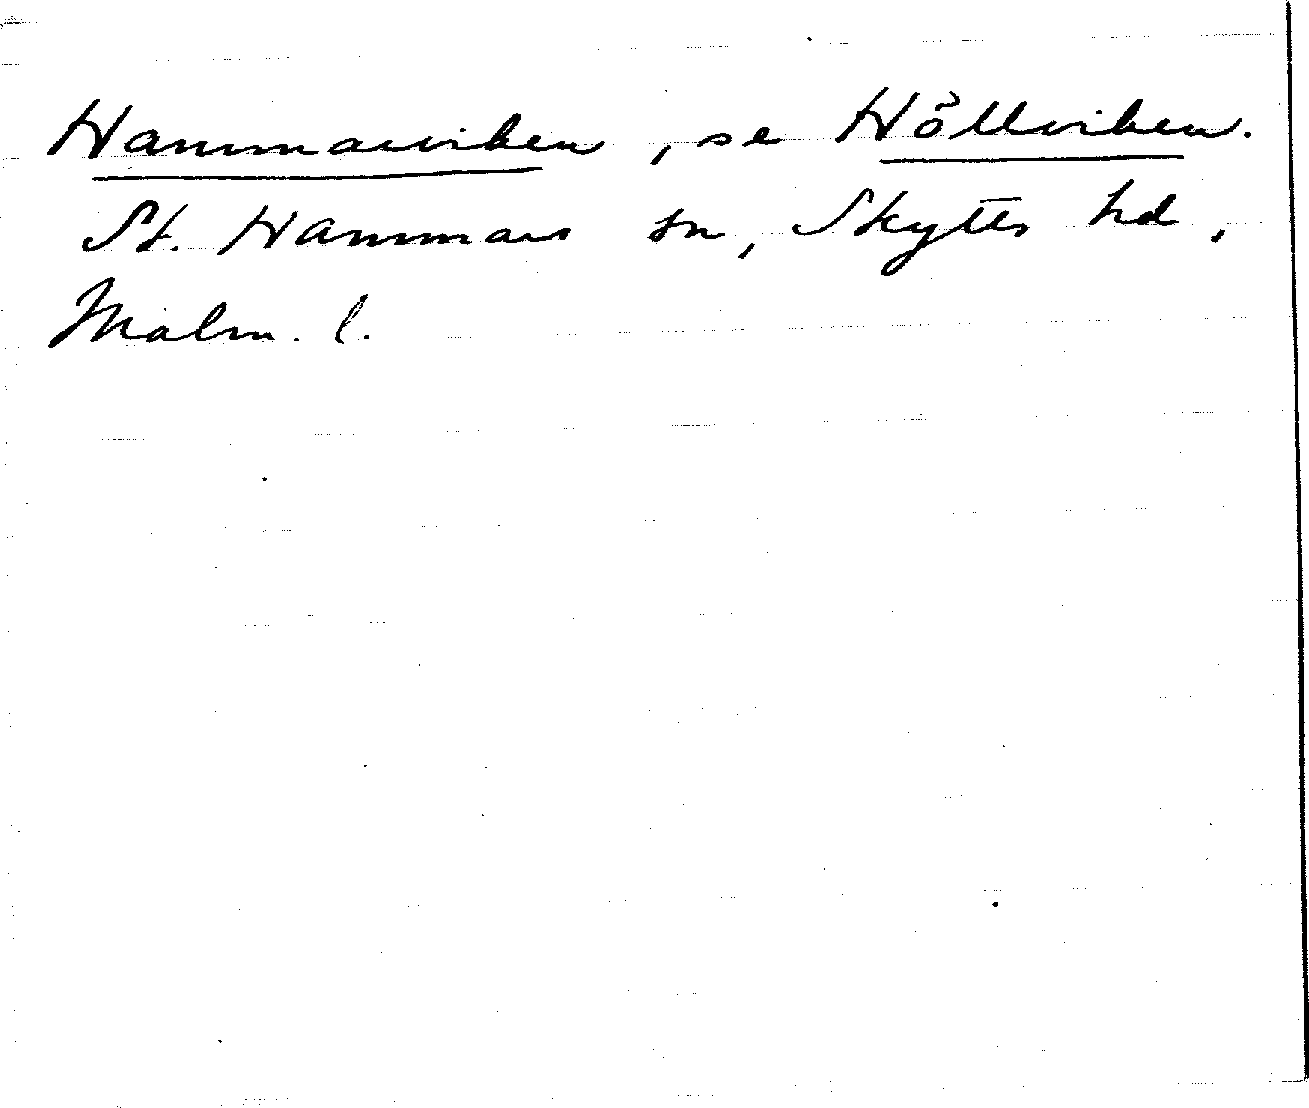 Hammarviken, se Höllviken.
St. Hammars sn, Skytts hd,
Malm. l.